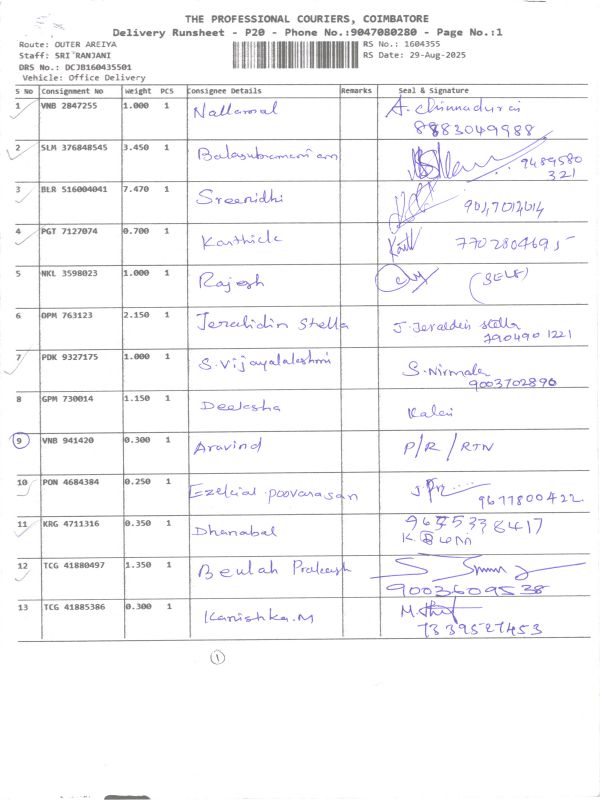 THE PROFESSIONAL COURIERS, COIMBATORE
Delivery Runsheet - P20 - Phone No.:9047080280 - Page No.:1
Route: OUTER AREIYA RS No.: 1604355
Staff: SRI RANJANI RS Date: 29-Aug-2025
DRS No.: DCJB160435501
Vehicle: Office Delivery
S No Consignment No Weight PCS Consignee Details Remarks Seal & Signature
1 VNB 2847255 1.000 1 Nallammal A. Chinnadurai
8883049988
2 SLM 376848545 3.450 1 Balasubramaniam 9489580
321
3 BLR 516004041 7.470 1 Sreenidhi 9047014014
4 PGT 7127074 0.700 1 Karthick
5 NKL 3598023 1.000 1 Rajesh (SELF)
6 OPM 763123 2.150 1 Jeralidin Stella J. Jeraldin stella
7904901221
7 PDK 9327175 1.000 1 S. Vijayalakshmi S. Nirmala
9003702890
8 GPM 730014 1.150 1 Deeksha Kalai
9 VNB 941420 0.300 1 Aravind P/R / RTN
10 PON 4684384 0.250 1 Ezekial poovarasan 9677800422
11 KRG 4711316 0.350 1 Dhanabal
12 TCG 41880497 1.350 1 Beulah Prakash
9003609538
13 TCG 41885386 0.300 1 Kanishka.M
7339527453
1